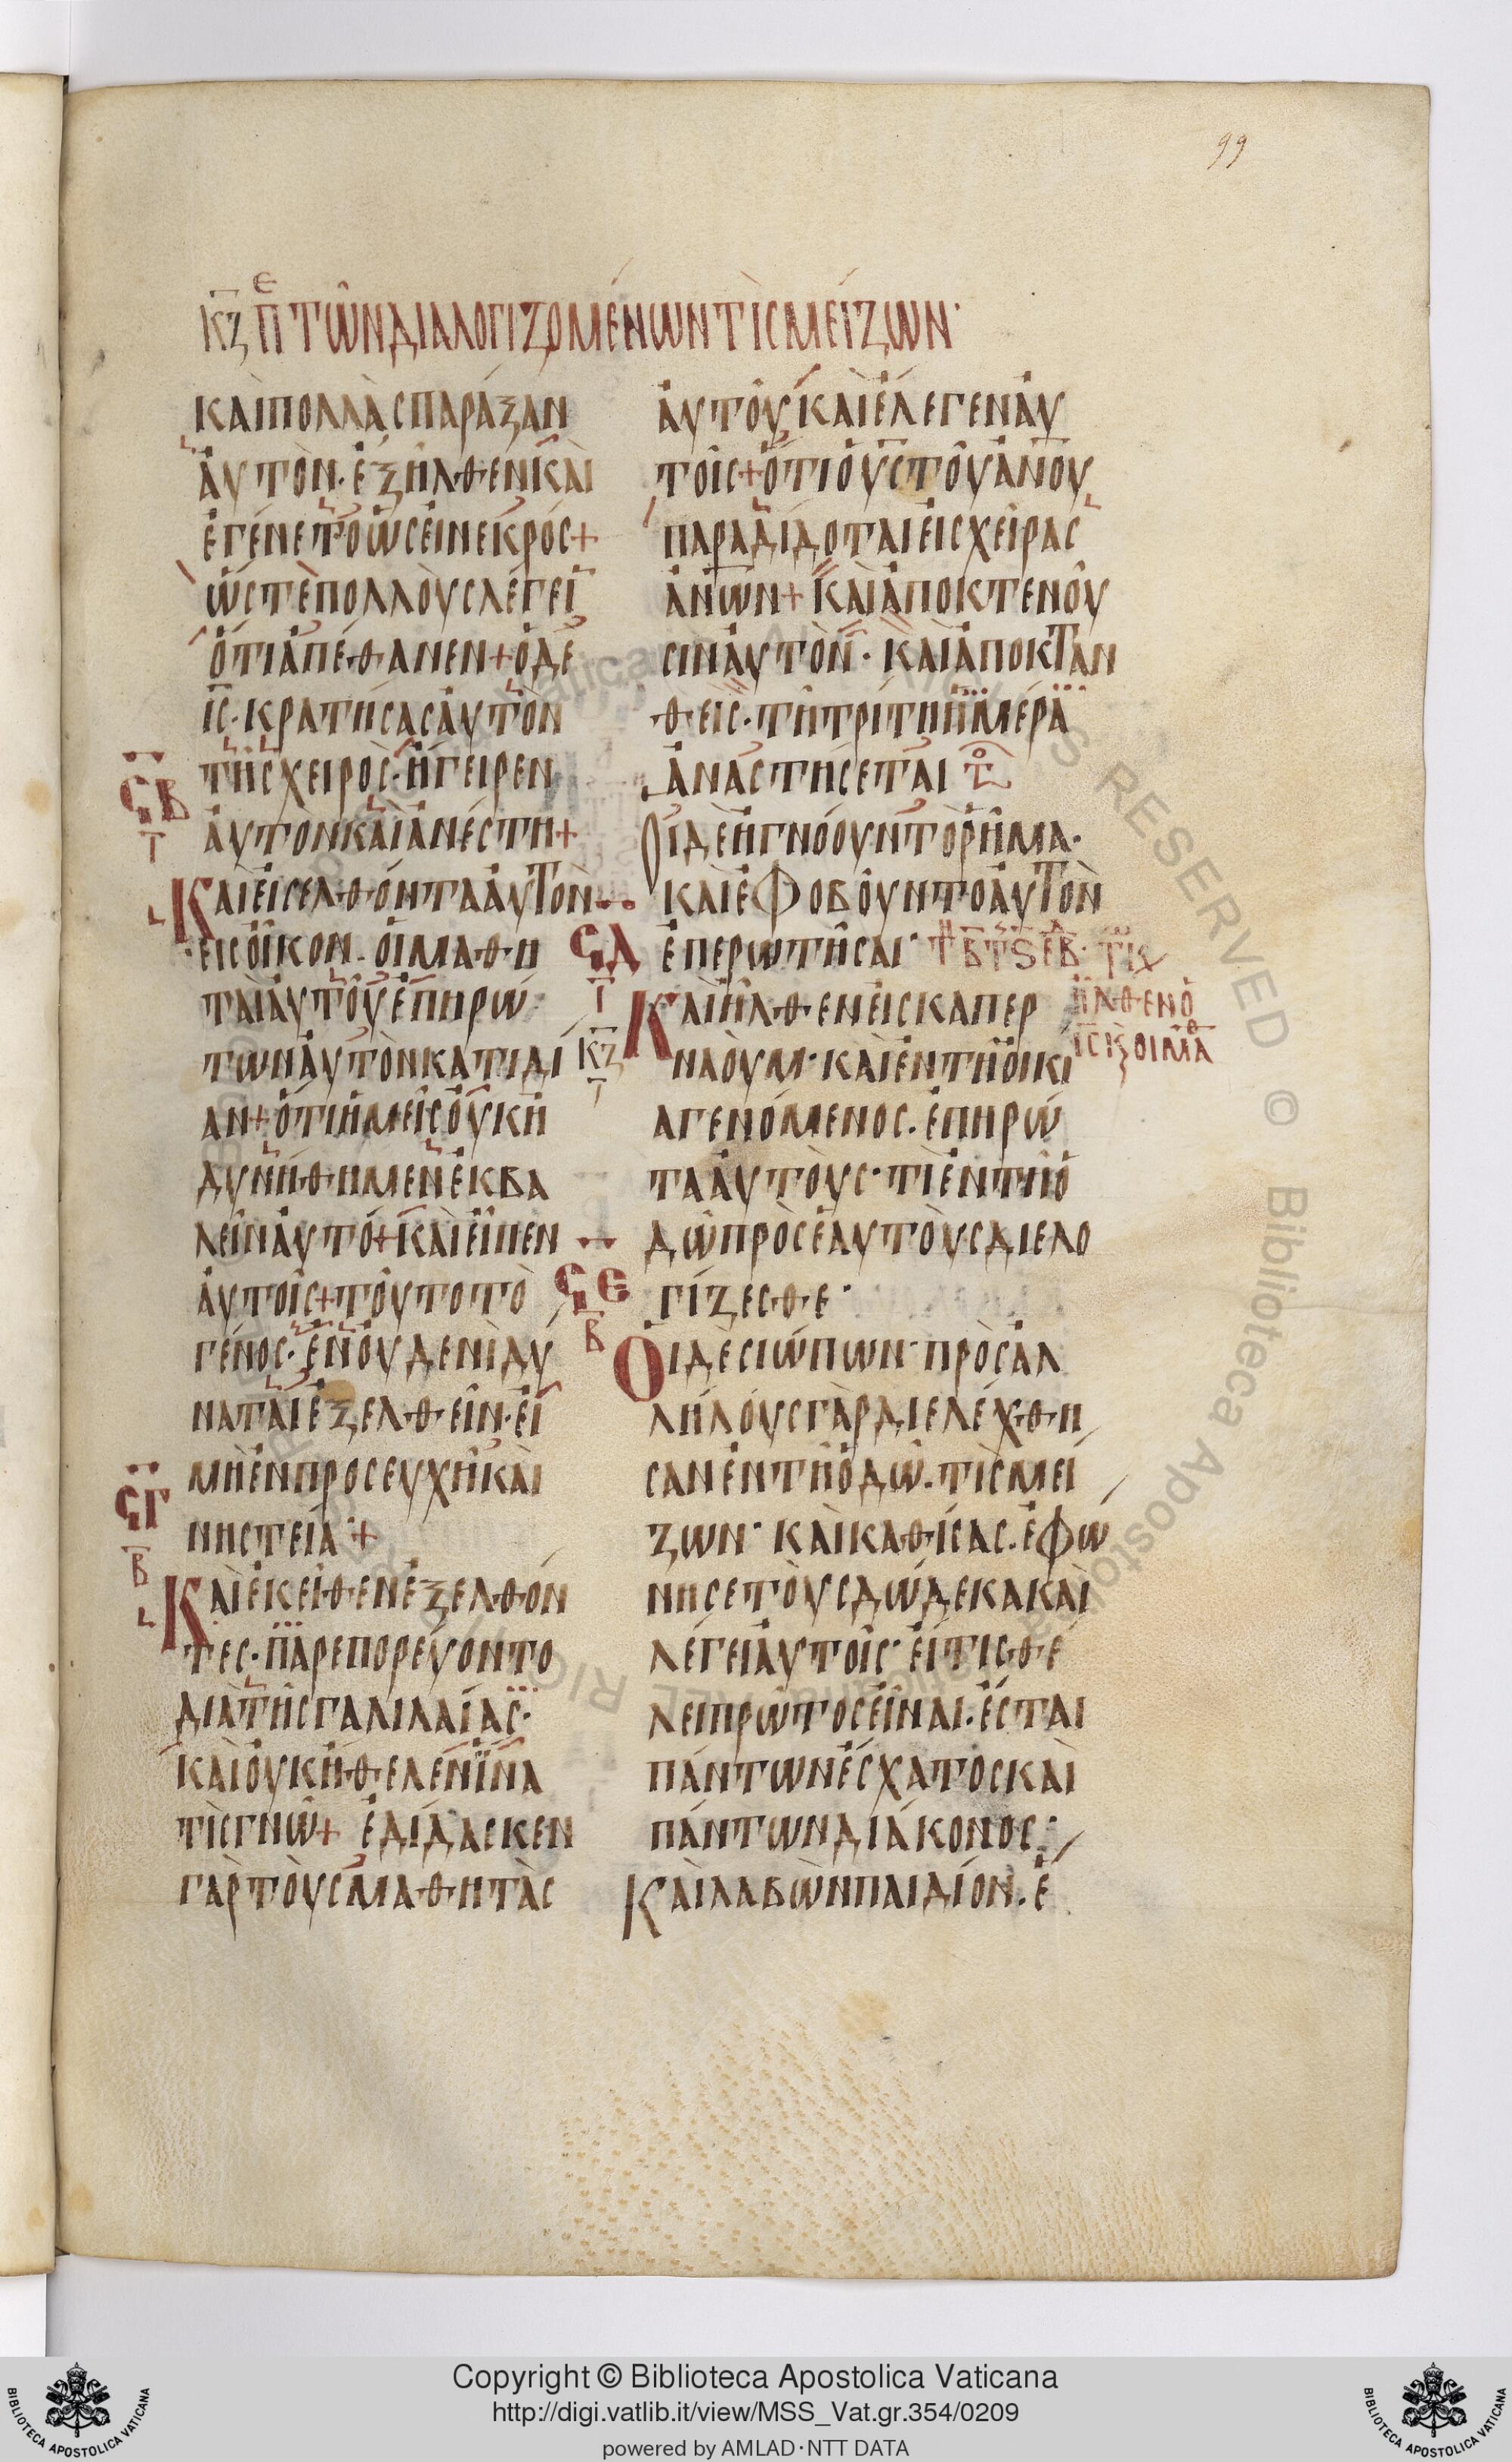 99
ΚΖ ΠΕ ΤΩΝ ΔΙΑΛΟΓΙΖΟΜΕΝΩΝ ΤΙΣ ΜΕΙΖΩΝ·
ΚΑΙ ΠΟΛΛΑ ΣΠΑΡΑΞΑΝ
ΑΥΤΟΝ· ΕΞΗΛΘΕΝ ΚΑΙ
ΕΓΕΝΕΤΟ ΩΣΕΙ ΝΕΚΡΟΣ+
ΩΣΤΕ ΠΟΛΛΟΥΣ ΛΕΓΕΙ̅
ΟΤΙ ΑΠΕΘΑΝΕΝ+ Ο ΔΕ
Ι̅Σ̅· ΚΡΑΤΗΣΑΣ ΑΥΤΟΝ
ΤΗΣ ΧΕΙΡΟΣ· ΗΓΕΙΡΕΝ
ΣΒ
Γ
ΑΥΤΟΝ ΚΑΙ ΑΝΕΣΤΗ+
ΚΑΙ ΕΙΣΕΛΘΟΝΤΑ ΑΥΤΟΝ
ΕΙΣ ΟΙΚΟΝ· ΟΙ ΜΑΘΗ
ΤΑΙ ΑΥΤΟΥ ΕΠΗΡΩ
ΤΩΝ ΑΥΤΟΝ ΚΑΤ ΙΔΙ
ΑΝ+ ΟΤΙ ΗΜΕΙΣ ΟΥΚ Η
ΔΥΝΗΘΗΜΕΝ ΕΚΒΑ
ΛΕΙΝ ΑΥΤΟ+ ΚΑΙ ΕΙΠΕΝ
ΑΥΤΟΙΣ+ ΤΟΥΤΟ ΤΟ
ΓΕΝΟΣ· ΕΝ ΟΥΔΕΝΙ ΔΥ
ΝΑΤΑΙ ΕΞΕΛΘΕΙΝ· ΕΙ
ΜΗ ΕΝ ΠΡΟΣΕΥΧΗ ΚΑΙ
ΣΓ
Β
ΝΗΣΤΕΙΑ·+
ΚΑΙ ΕΚΕΙΘΕΝ ΕΞΕΛΘΟΝ
ΤΕΣ· ΠΑΡΕΠΟΡΕΥΟΝΤΟ
ΔΙΑ ΤΗΣ ΓΑΛΙΛΑΙΑΣ·
ΚΑΙ ΟΥΚ ΗΘΕΛΕΝ ΙΝΑ
ΤΙΣ ΓΝΩ+ ΕΔΙΔΑΣΚΕΝ
ΓΑΡ ΤΟΥΣ ΜΑΘΗΤΑΣ
ΑΥΤΟΥ ΚΑΙ ΕΛΕΓΕΝ ΑΥ
ΤΟΙΣ+ ΟΤΙ Ο Υ̅Σ̅ ΤΟΥ Α̅Ν̅Ο̅Υ̅
ΠΑΡΑΔΙΔΟΤΑΙ ΕΙΣ ΧΕΙΡΑΣ
Α̅Ν̅Ω̅Ν̅+ ΚΑΙ ΑΠΟΚΤΕΝΟΥ
ΣΙΝ ΑΥΤΟΝ· ΚΑΙ ΑΠΟΚΤΑΝ
ΘΕΙΣ· ΤΗ ΤΡΙΤΗ ΗΜΕΡΑ
ΑΝΑΣΤΗΣΕΤΑΙ
ΟΙ ΔΕ ΗΓΝΟΟΥΝ ΤΟ ΡΗΜΑ·
ΚΑΙ ΕΦΟΒΟΥΝΤΟ ΑΥΤΟΝ
ΣΔ
Γ
ΕΠΕΡΩΤΗΣΑΙ·
ΚΖ
ΚΑΙ ΗΛΘΕΝ ΕΙΣ ΚΑΠΕΡ
ΗΛΘΕΝ Ο
Ι̅Σ̅ Κ ΟΙ ΜΑΘ
ΝΑΟΥΜ· ΚΑΙ ΕΝ ΤΗ ΟΙΚΙ
Α ΓΕΝΟΜΕΝΟΣ· ΕΠΗΡΩ
ΤΑ ΑΥΤΟΥΣ· ΤΙ ΕΝ ΤΗ Ο
ΔΩ ΠΡΟΣ ΕΑΥΤΟΥΣ ΔΙΕΛΟ
ΣΕ
Β
ΓΙΖΕΣΘΕ·
ΟΙ ΔΕ ΣΙΩΠΩΝ· ΠΡΟΣ ΑΛ
ΛΗΛΟΥΣ ΓΑΡ ΔΙΕΛΕΧΘΗ
ΣΑΝ ΕΝ ΤΗ ΟΔΩ· ΤΙΣ ΜΕΙ
ΖΩΝ· ΚΑΙ ΚΑΘΙΣΑΣ· ΕΦΩ
ΝΗΣΕ ΤΟΥΣ ΔΩΔΕΚΑ ΚΑΙ
ΛΕΓΕΙ ΑΥΤΟΙΣ· ΕΙ ΤΙΣ ΘΕ
ΛΕΙ ΠΡΩΤΟΣ ΕΙΝΑΙ· ΕΣΤΑΙ
ΠΑΝΤΩΝ ΕΣΧΑΤΟΣ ΚΑΙ
ΠΑΝΤΩΝ ΔΙΑΚΟΝΟΣ·
ΚΑΙ ΛΑΒΩΝ ΠΑΙΔΙΟΝ· Ε
Copyright © Biblioteca Apostolica Vaticana
http://digi.vatlib.it/view/MSS_Vat.gr.354/0209
powered by AMLAD·NTT DATA
BIBLIOTECA APOSTOLICA VATICANA
BIBLIOTECA APOSTOLICA VATICANA